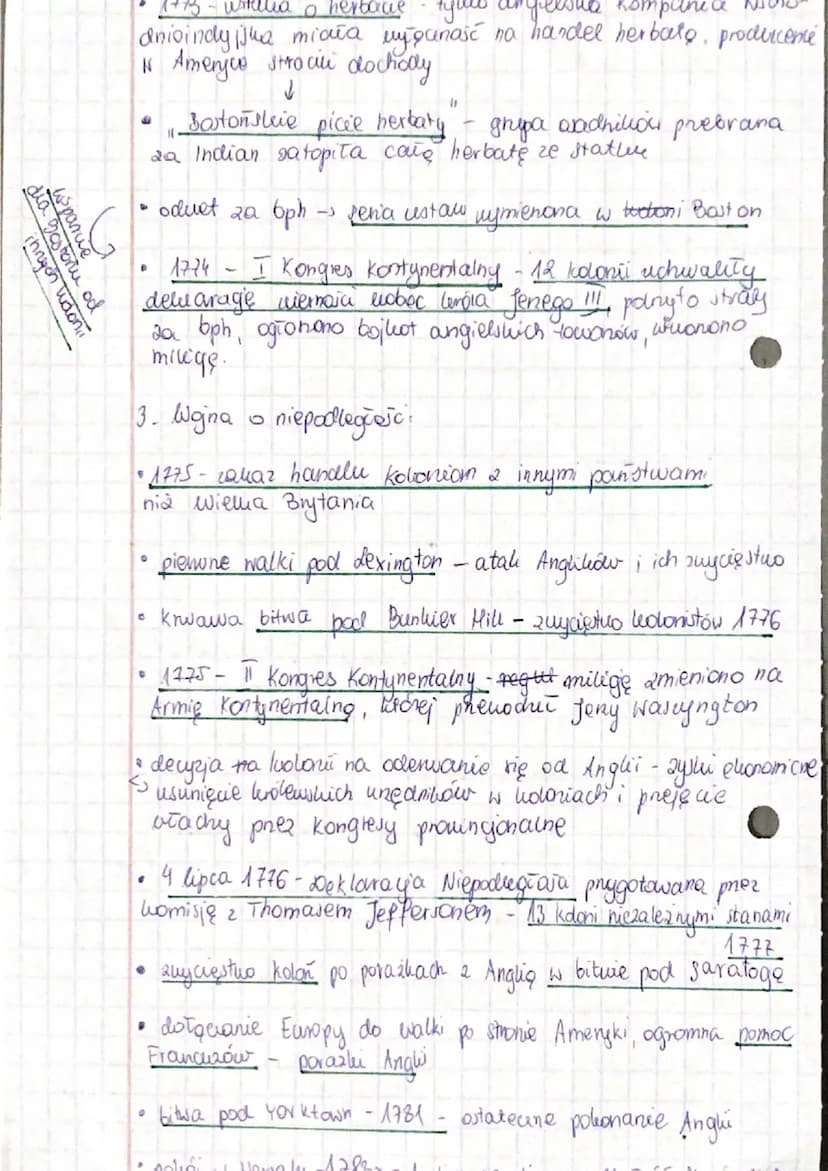 • 1773 - ustawa o herbacie - tylko angielska kompania wscho-
dnioindyjska miała wyłączność na handel herbatą, producenci
w Ameryce stracili dochody
↓
• "Bostońskie picie herbaty" - grupa osadników przebrana
za Indian zatopiła całą herbatę ze statku
• odwet za bph → seria ustaw wymierzona w Boston
wsparcie
dla Bostonu od
innych kolonii
• 1774 - I Kongres Kontynentalny - 12 kolonii uchwaliły
deklarację wierności wobec króla Jerzego III, pokryto straty
za bph, ogłoszono bojkot angielskich towarów, utworzono
milicję.
3. Wojna o niepodległość:
• 1775 - zakaz handlu koloniom z innymi państwami
niż Wielka Brytania
• pierwsze walki pod Lexington - atak Anglików i ich zwycięstwo
• krwawa bitwa pod Bunkier Hill - zwycięstwo kolonistów 1776
• 1775 - II Kongres Kontynentalny - milicję zmieniono na
Armię Kontynentalną, której przewodził Jerzy Waszyngton
• decyzja kolonii na oderwanie się od Anglii - zyski ekonomiczne
↳ usunięcie królewskich urzędników w koloniach i przejęcie
władzy przez kongresy prowincjonalne
• 4 lipca 1776 - Deklaracja Niepodległości przygotowana przez
komisję z Thomasem Jeffersonem - 13 kolonii niezależnymi stanami
1777
• zwycięstwo kolonii po porażkach z Anglią w bitwie pod Saratogą
• dołączanie Europy do walki po stronie Ameryki, ogromna pomoc
Francuzów - porażki Anglii
• bitwa pod Yorktown - 1781 - ostateczne pokonanie Anglii
• pokój 1783